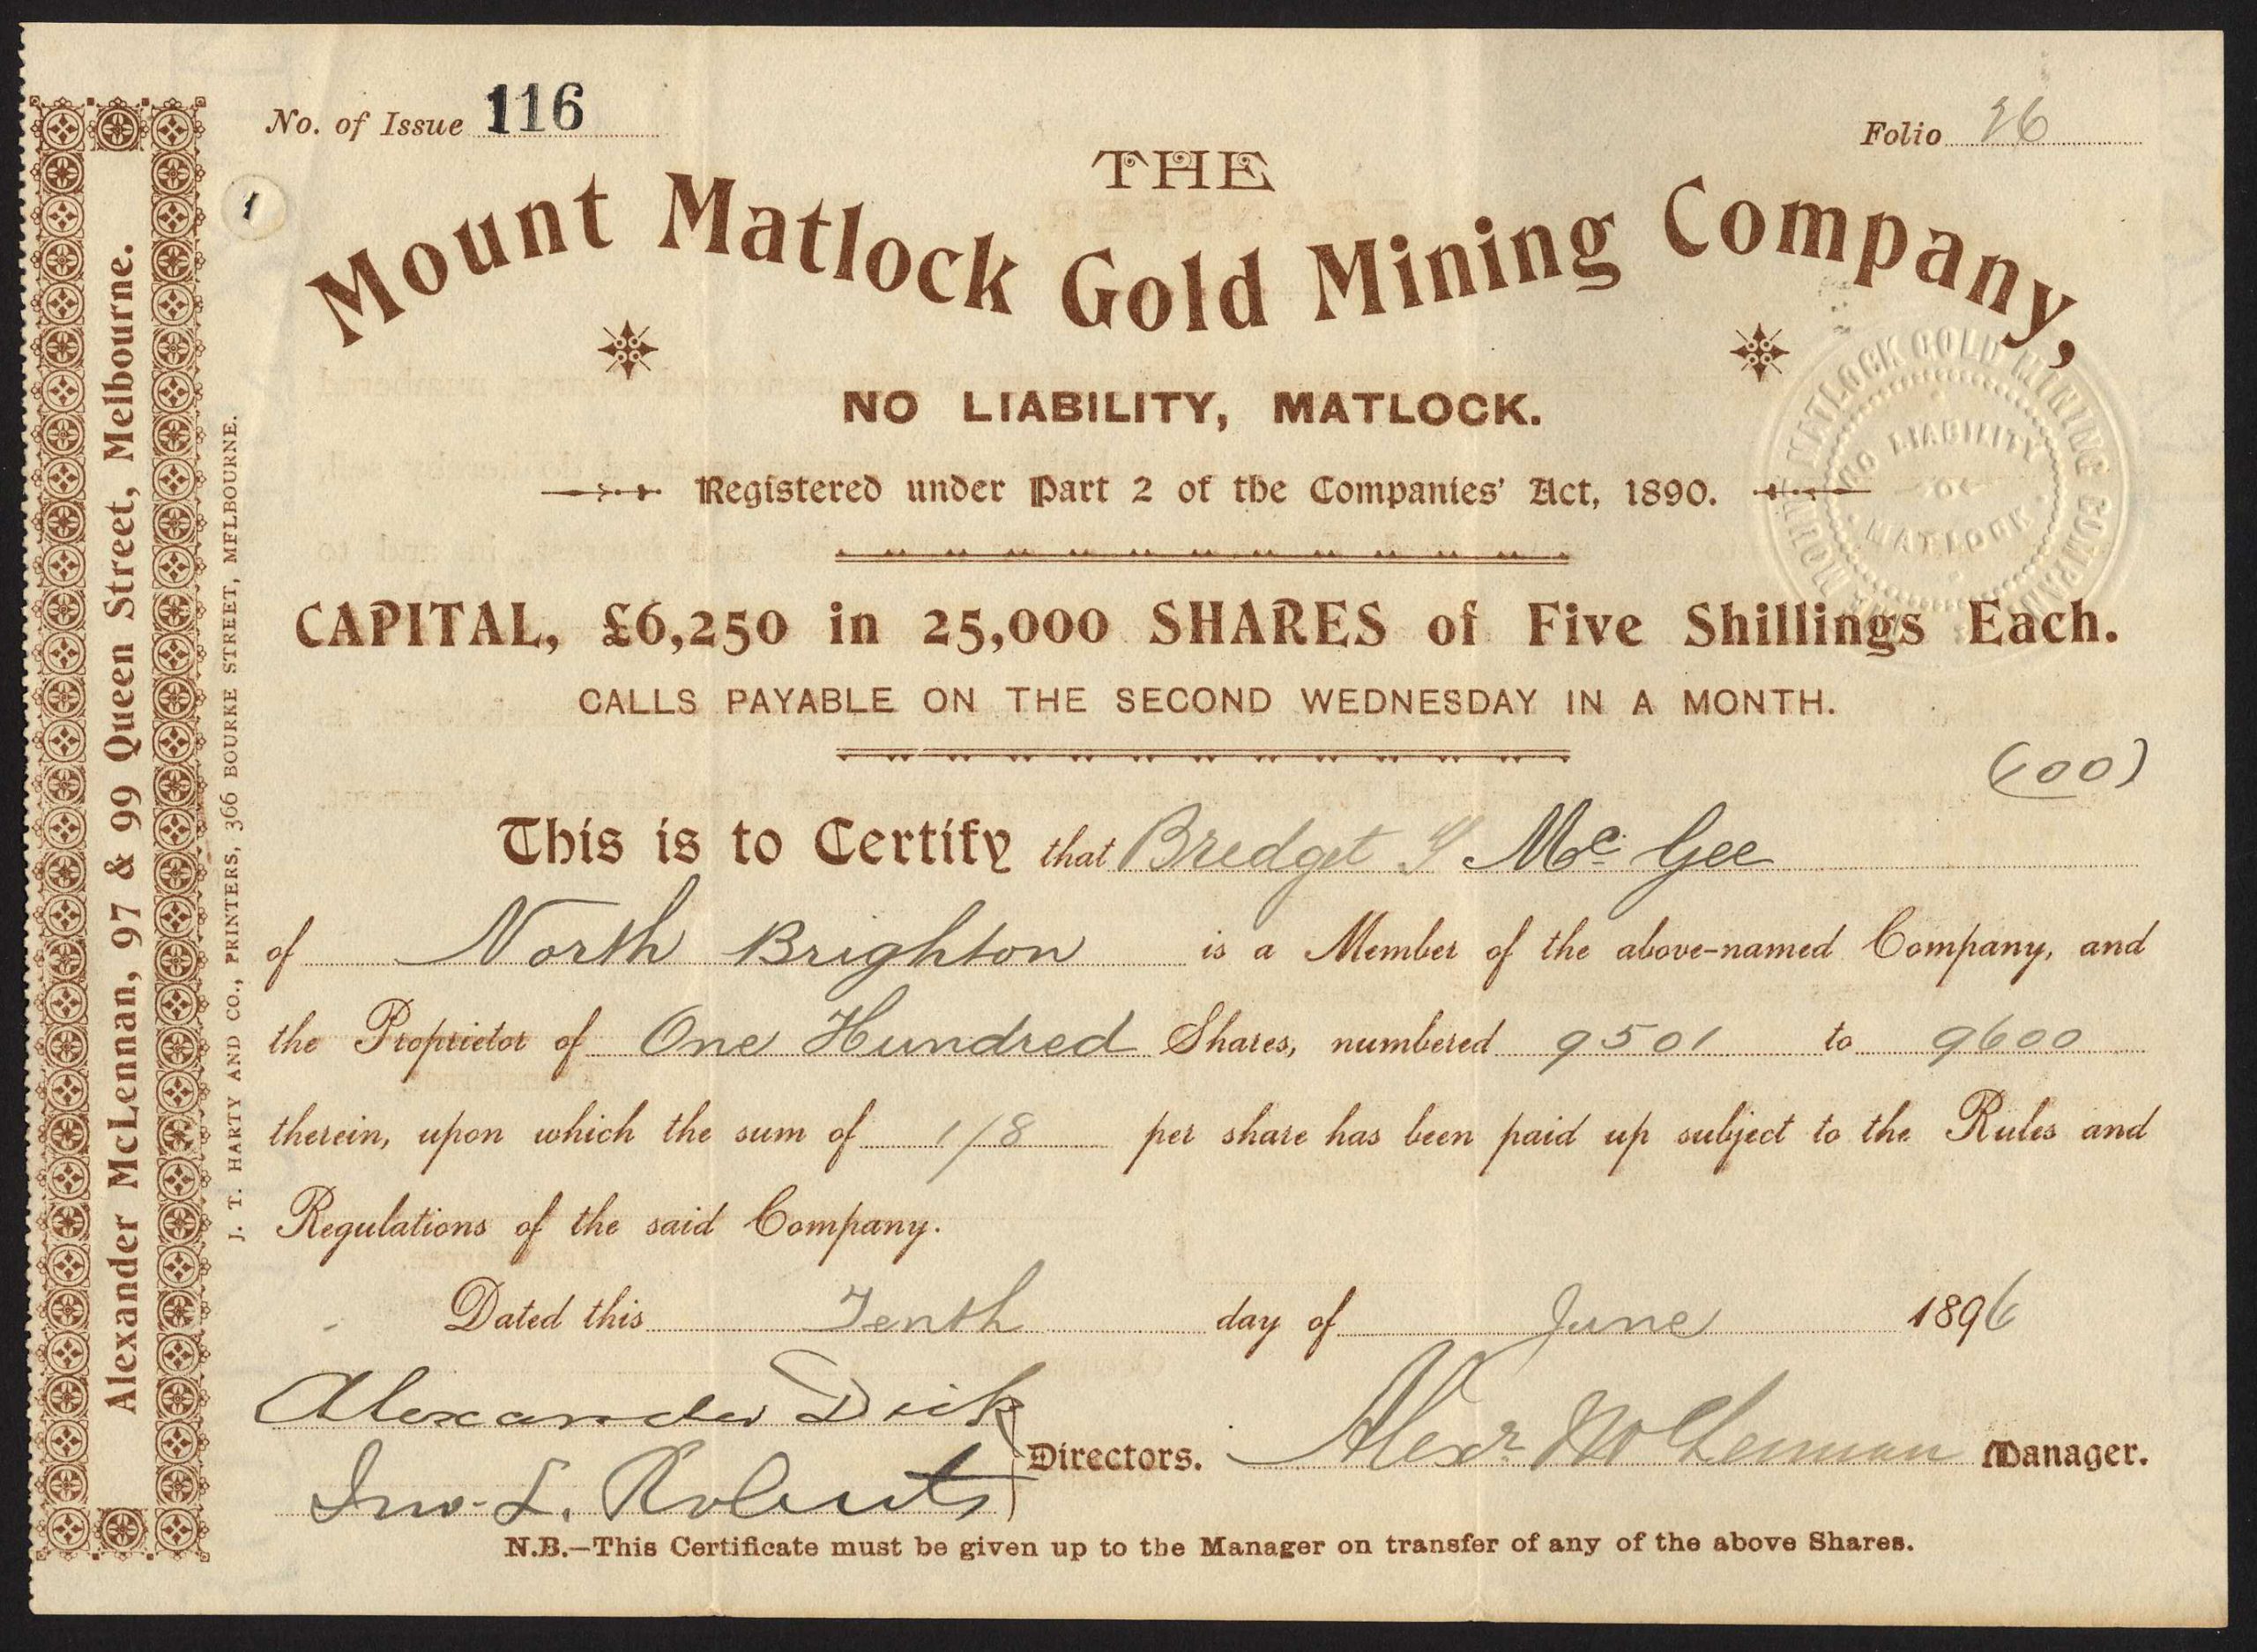 No. of Issue 116
Folio 26
1
THE
Mount Matlock Gold Mining Company,
NO LIABILITY, MATLOCK.
Registered under Part 2 of the Companies' Act, 1890.
MOUNT MATLOCK GOLD MINING COMPANY
NO LIABILITY
MATLOCK
CAPITAL, £6,250 in 25,000 SHARES of Five Shillings Each.
CALLS PAYABLE ON THE SECOND WEDNESDAY IN A MONTH.
(100)
This is to Certify that Bredget Mc Gee
of North Brighton is a Member of the above-named Company, and
the Proprietor of One Hundred Shares, numbered 9501 to 9600
therein, upon which the sum of 1/8 per share has been paid up subject to the Rules and
Regulations of the said Company.
Dated this Tenth day of June 1896
Alexander Dick
Jno. L. Roberts
Directors. Alexr McLennan Manager.
N.B.—This Certificate must be given up to the Manager on transfer of any of the above Shares.
Alexander McLennan, 97 & 99 Queen Street, Melbourne.
J. T. HARTY AND CO., PRINTERS, 366 BOURKE STREET, MELBOURNE.